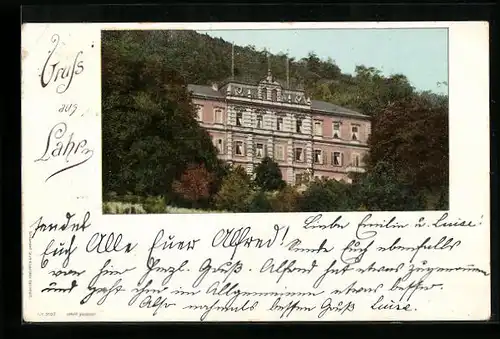 Gruss
aus
Lahr.
sendet
Euch Alle Euer Alfred!
Liebe Emilie u. Luise!
Sende Euch ebenfalls
von hier herzl. Gruß. Alfred hat etwas zugenommen
und geht ihm im Allgemeinen etwas besser.
Also nochmals besten Gruß Luise.